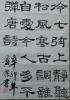 泠々七絃上靜聽
松風寒古調雖
自愛今人多不
彈